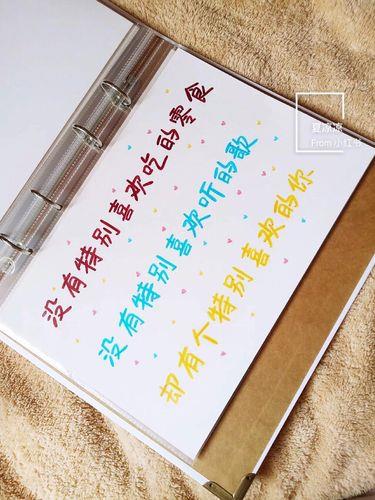 没有特别喜欢吃的零食
没有特别喜欢听的歌
却有个特别喜欢的你
From 小红书